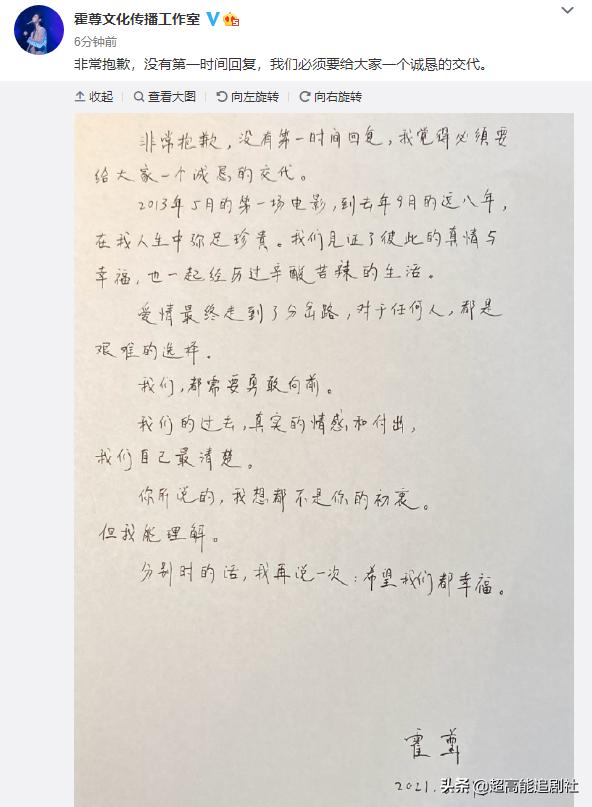 霍尊文化传播工作室
6分钟前
非常抱歉，没有第一时间回复，我们必须要给大家一个诚恳的交代。
收起 查看大图 向左旋转 向右旋转
非常抱歉，没有第一时间回复，我觉得必须要
给大家一个诚恳的交代。
2013年5月的第一场电影，到去年9月的近八年，
在我人生中弥足珍贵。我们见证了彼此的真情与
幸福，也一起经历过辛酸苦辣的生活。
爱情最终走到了分岔路，对于任何人，都是
艰难的选择。
我们，都需要勇敢向前。
我们的过去，真实的情感和付出，
我们自己最清楚。
你所说的，我想都不是你的初衷。
但我能理解。
分别时的话，我再说一次：希望我们都幸福。
霍尊
2021.
头条@超高能追剧社